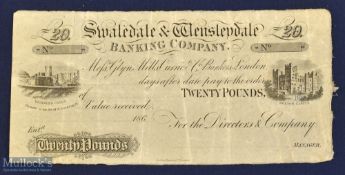 £20. Swaledale & Wensleydale £20.
BANKING COMPANY.
No No
Messrs Glyn, Mills, Currie & Co Bankers London
days after date pay to the order
of TWENTY POUNDS,
Value received
186 For the Directors & Company
Entd
Twenty Pounds
MANAGER.
Mullock's